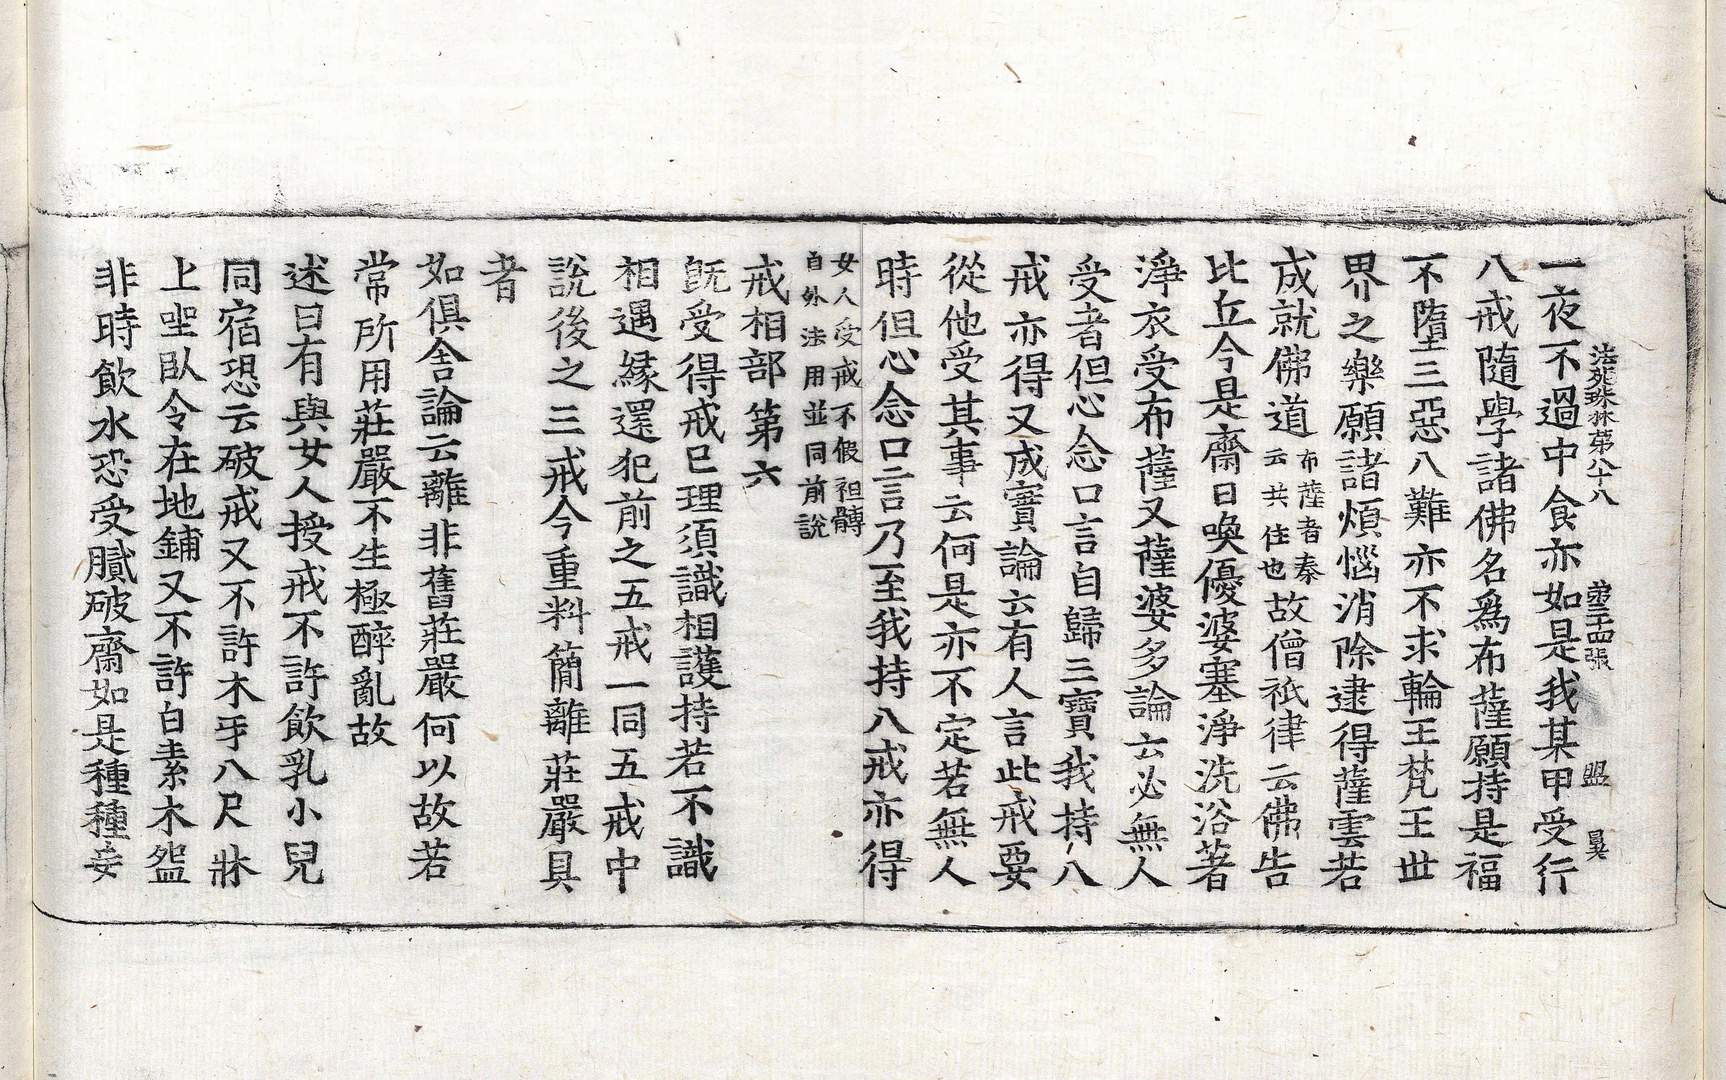 法苑珠林第八十八 第二十四張 盟 㒷
一夜不過中食亦如是我某甲受行
八戒隨學諸佛名爲布薩願持是福
不墮三惡八難亦不求輪王梵王世
界之樂願諸煩惱消除逮得薩雲若
成就佛道布薩者秦云共住也故僧祇律云佛告
比丘今是齋日喚優婆塞淨洗浴著
淨衣受布薩又薩婆多論云必無人
受者但心念口言自歸三寶我持八
戒亦得又成實論云有人言此戒要
從他受其事云何是亦不定若無人
時但心念口言乃至我持八戒亦得
女人受戒不假袒髆
自外法用並同前說
戒相部第六
旣受得戒已理須識相護持若不識
相遇緣還犯前之五戒一同五戒中
說後之三戒今重料簡離莊嚴具
者
如俱舍論云離非舊莊嚴何以故若
常所用莊嚴不生極醉亂故
述曰有與女人授戒不許飮乳小兒
同宿恐云破戒又不許木牙八尺牀
上坐臥令在地鋪又不許白素木盌
非時飮水恐受膩破齋如是種種妄